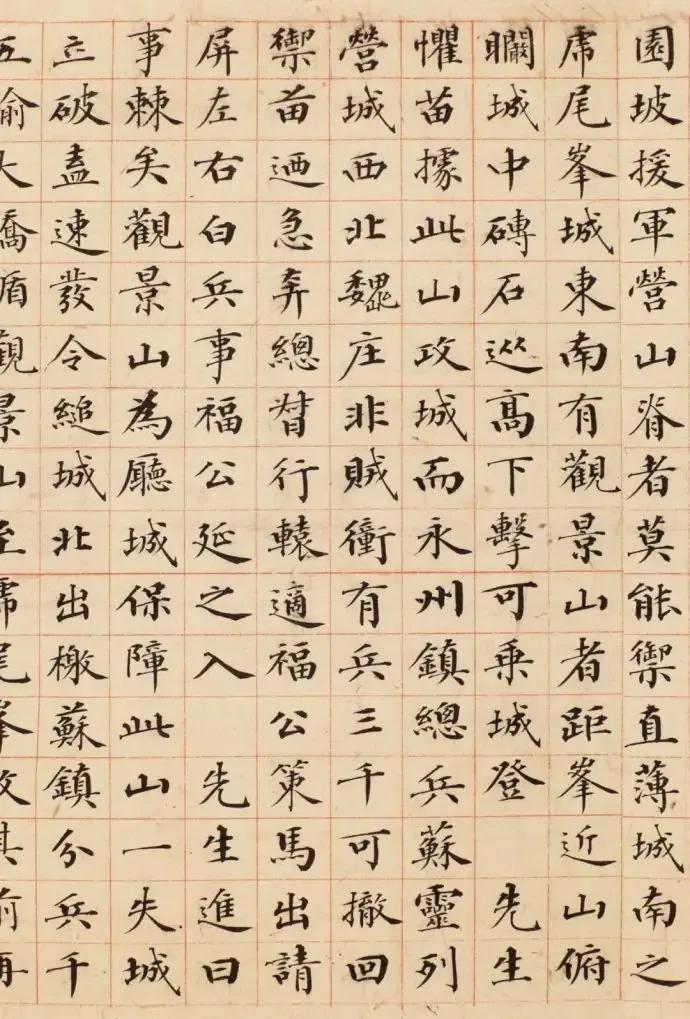 園坡援軍營山脊者莫能禦直薄城南之
虎尾峯城東南有觀景山者距峯近山俯
矙城中磚石從高下擊可乗城登 先生
懼苗據此山攻城而永州鎮總兵蘇靈列
營城西北魏庄非賊衝有兵三千可撤回
禦苗迺急奔總督行轅適福公策馬出請
屏左右白兵事福公延之入 先生進曰
事棘矣觀景山為廳城保障此山一失城
立破盍速發令縋城北出檄蘇鎮分兵千
五大觀景山至虎尾峯其前再